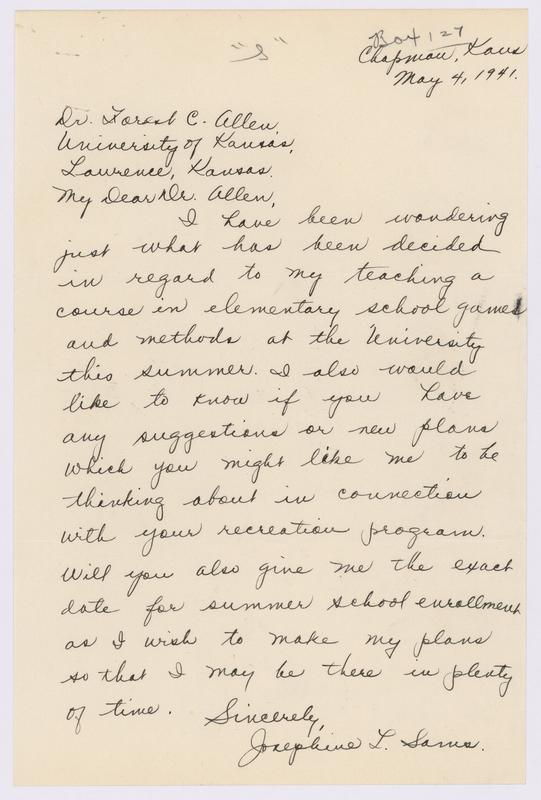 "S"
Box 127
Chapman, Kans
May 4, 1941.
Dr. Forest C. Allen,
University of Kansas,
Lawrence, Kansas.
My Dear Dr. Allen,
I have been wondering
just what has been decided
in regard to my teaching a
course in elementary school games
and methods at the University
this summer. I also would
like to know if you have
any suggestions or new plans
which you might like me to be
thinking about in connection
with your recreation program.
Will you also give me the exact
date for summer school enrollment
as I wish to make my plans
so that I may be there in plenty
of time.
Sincerely,
Josephine L. Sams.